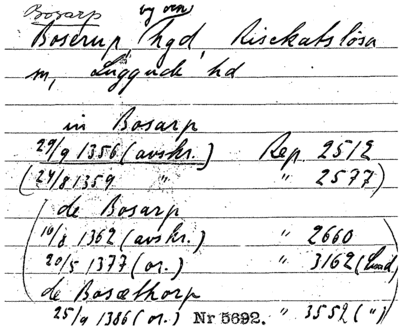 Bosarp
Boserup, hgd, Risekatslösa
m, Luggude hd
in Bosarp
29/9 1356 (avskr.) Rep 2512
(24/8 1359 " " 2577)
de Bosarp
16/8 1362 (avskr.) " 2660
20/5 1377 (or.) " 3162 (Lund)
de Bosæthorp
25/9 1386 (or.) Nr 5692. " 3552 (")